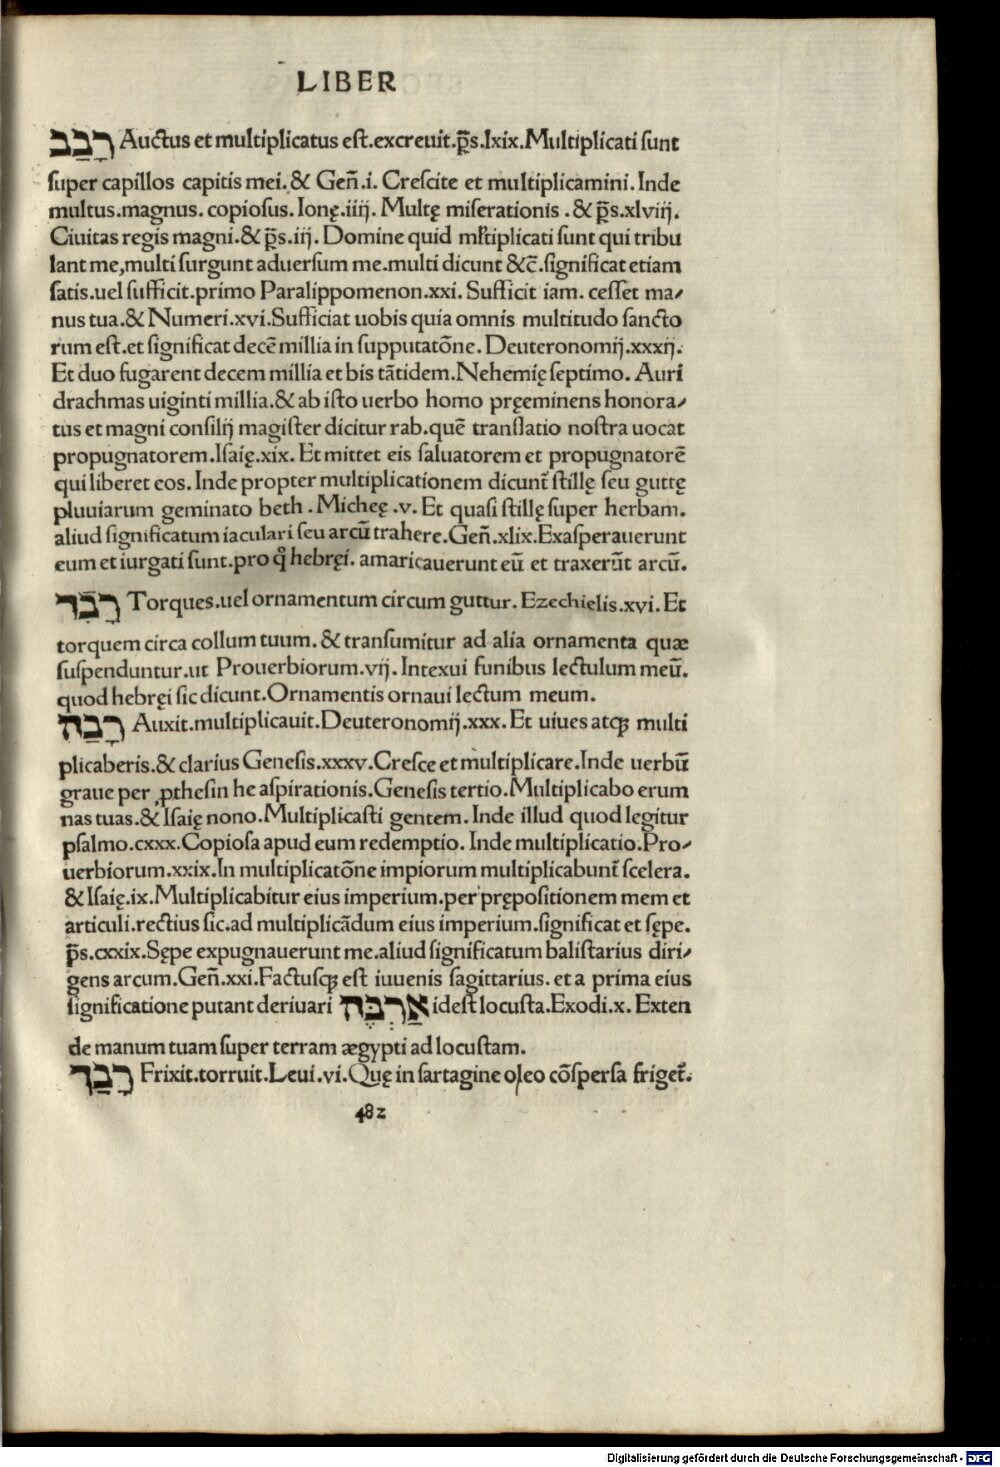 LIBER
רָבַב Auctus et multiplicatus eſt.excreuit.p̄s.lxix.Multiplicati ſunt
ſuper capillos capitis mei.& Geñ.i. Creſcite et multiplicamini. Inde
multus.magnus. copioſus. Ionę.iiij. Multę miſerationis . & p̄s.xlviij.
Ciuitas regis magni.& p̄s.iij. Domine quid mĺtiplicati ſunt qui tribu
lant me,multi ſurgunt aduerſum me.multi dicunt &c̄.ſignificat etiam
ſatis.uel ſufficit.primo Paralippomenon.xxi. Sufficit iam. ceſſet ma⸗
nus tua.& Numeri.xvi.Sufficiat uobis quia omnis multitudo ſancto
rum eſt.et ſignificat decē millia in ſupputatōne. Deuteronomij.xxxij.
Et duo fugarent decem millia et bis tātidem.Nehemię ſeptimo. Auri
drachmas uiginti millia.& ab iſto uerbo homo pręeminens honora⸗
tus et magni conſilij magiſter dicitur rab.quē translatio noſtra uocat
propugnatorem.Iſaię.xix. Et mittet eis ſaluatorem et propugnatorē
qui liberet eos. Inde propter multiplicationem dicunt̄ ſtillę ſeu guttę
pluuiarum geminato beth . Micheę .v. Et quaſi ſtillę ſuper herbam.
aliud ſignificatum iaculari ſeu arcū trahere. Geñ.xlix.Exaſperauerunt
eum et iurgati ſunt.pro q̊ hebręi. amaricauerunt eū et traxerūt arcū.
רָבַד Torques.uel ornamentum circum guttur. Ezechielis.xvi. Et
torquem circa collum tuum. & tranſumitur ad alia ornamenta quæ
ſuſpenduntur.ut Prouerbiorum.vij. Intexui funibus lectulum meū.
quod hebręi ſic dicunt.Ornamentis ornaui lectum meum.
רָבַה Auxit.multiplicauit.Deuteronomij.xxx. Et uiues atqꝫ multi
plicaberis.& clarius Geneſis.xxxv.Creſce et multiplicare.Inde uerbū
graue per ꝓtheſin he aſpirationis.Geneſis tertio.Multiplicabo erum
nas tuas.& Iſaię nono.Multiplicaſti gentem. Inde illud quod legitur
pſalmo.cxxx.Copioſa apud eum redemptio. Inde multiplicatio.Pro⸗
uerbiorum.xxix.In multiplicatōne impiorum multiplicabunt̄ ſcelera.
& Iſaię.ix.Multiplicabitur eius imperium.per prępoſitionem mem et
articuli.rectius ſic.ad multiplicādum eius imperium.ſignificat et ſępe.
p̄s.cxxix.Sępe expugnauerunt me.aliud ſignificatum baliſtarius diri⸗
gens arcum.Geñ.xxi.Factuſqꝫ eſt iuuenis ſagittarius. et a prima eius
ſignificatione putant deriuari אַרְבֶּה ideſt locuſta.Exodi.x. Exten
de manum tuam ſuper terram ægypti ad locuſtam.
רָבַךְ Frixit.torruit.Leui.vi.Quę in ſartagine oleo cōſperſa friget̄.
482
Digitalisierung gefördert durch die Deutsche Forschungsgemeinschaft - DFG